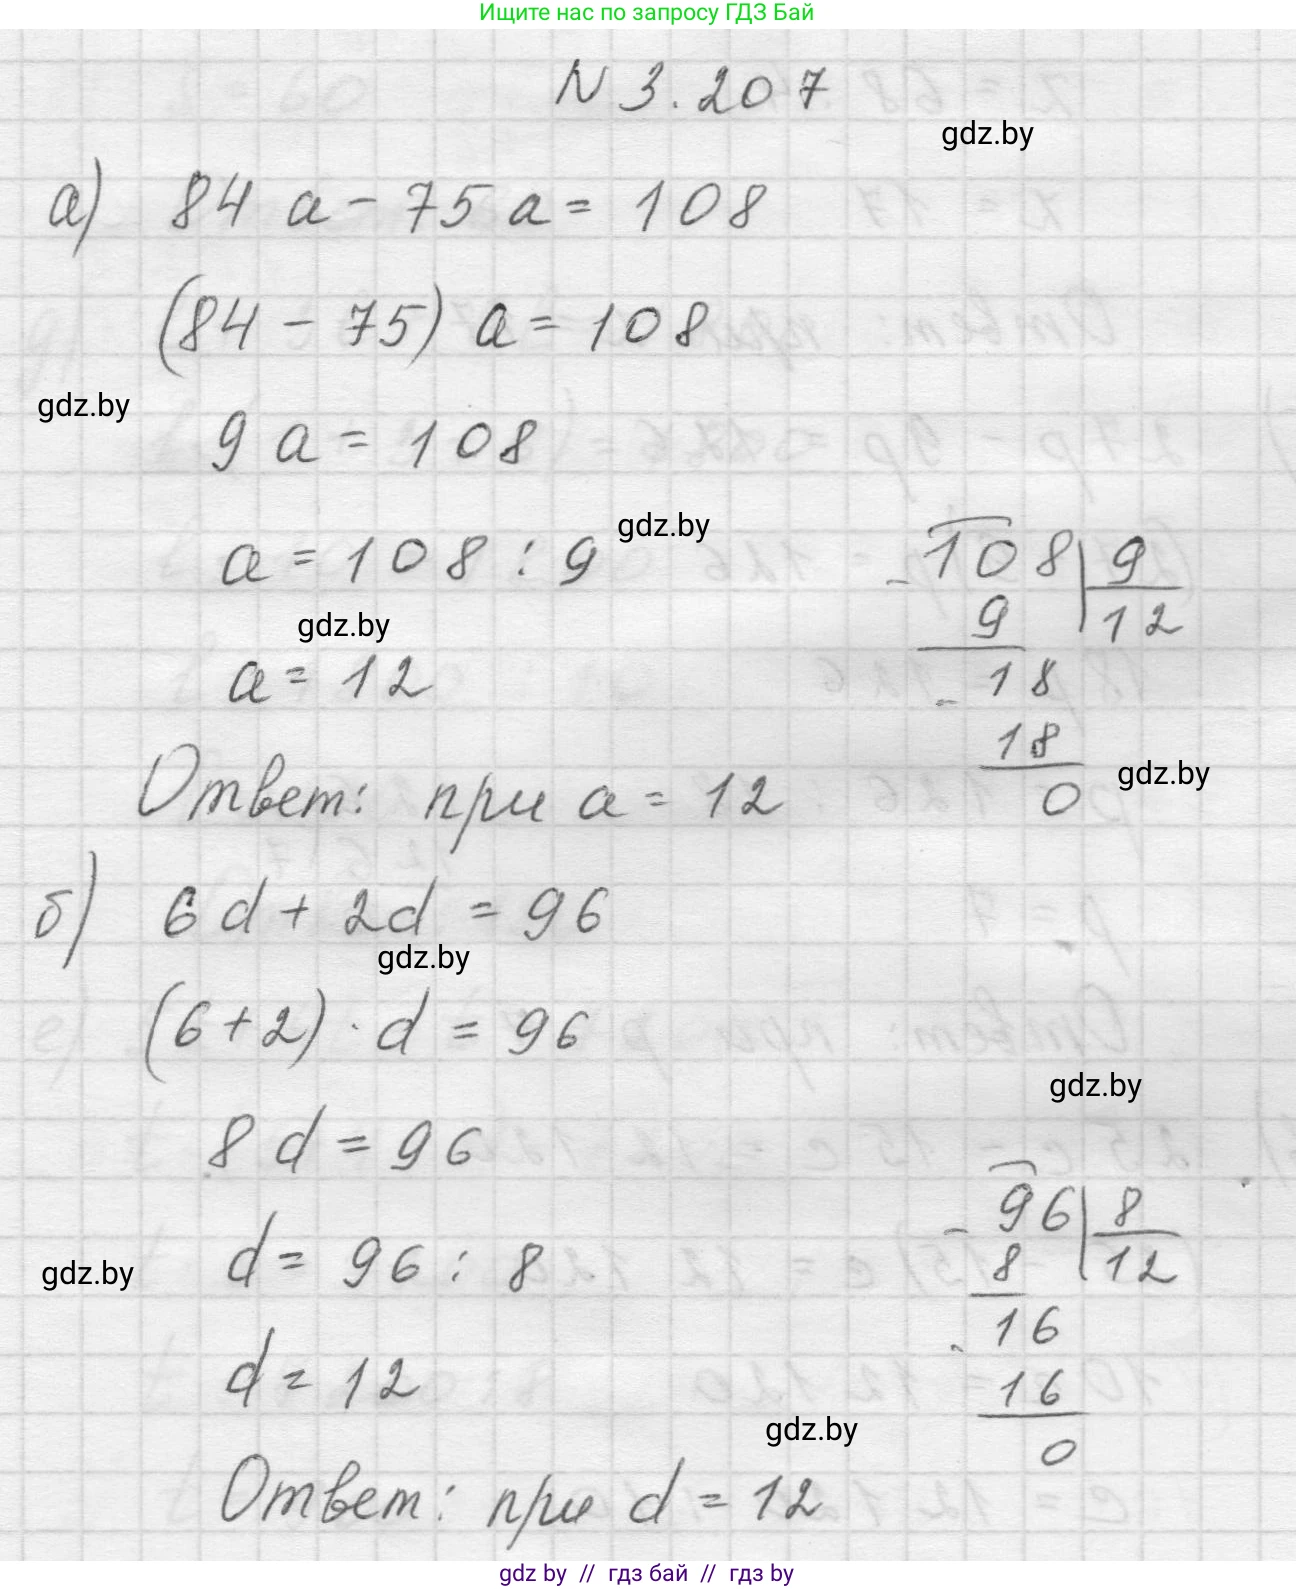 Ищите нас по запросу ГДЗ Бай
N 3.207
gdz.by
а) 84 a - 75 a = 108
(84 - 75) a = 108
gdz.by
9 a = 108
gdz.by
a = 108 : 9
108 9
gdz.by
9 12
a = 12
- 18
18
gdz.by
0
Ответ: при a = 12
б) 6d + 2d = 96
gdz.by
(6+2) · d = 96
gdz.by
8 d = 96
- 96 8
gdz.by
d = 96 : 8
8 12
16
d = 12
16
gdz.by
0
Ответ: при d = 12
gdz by // гдз бай // гдз by